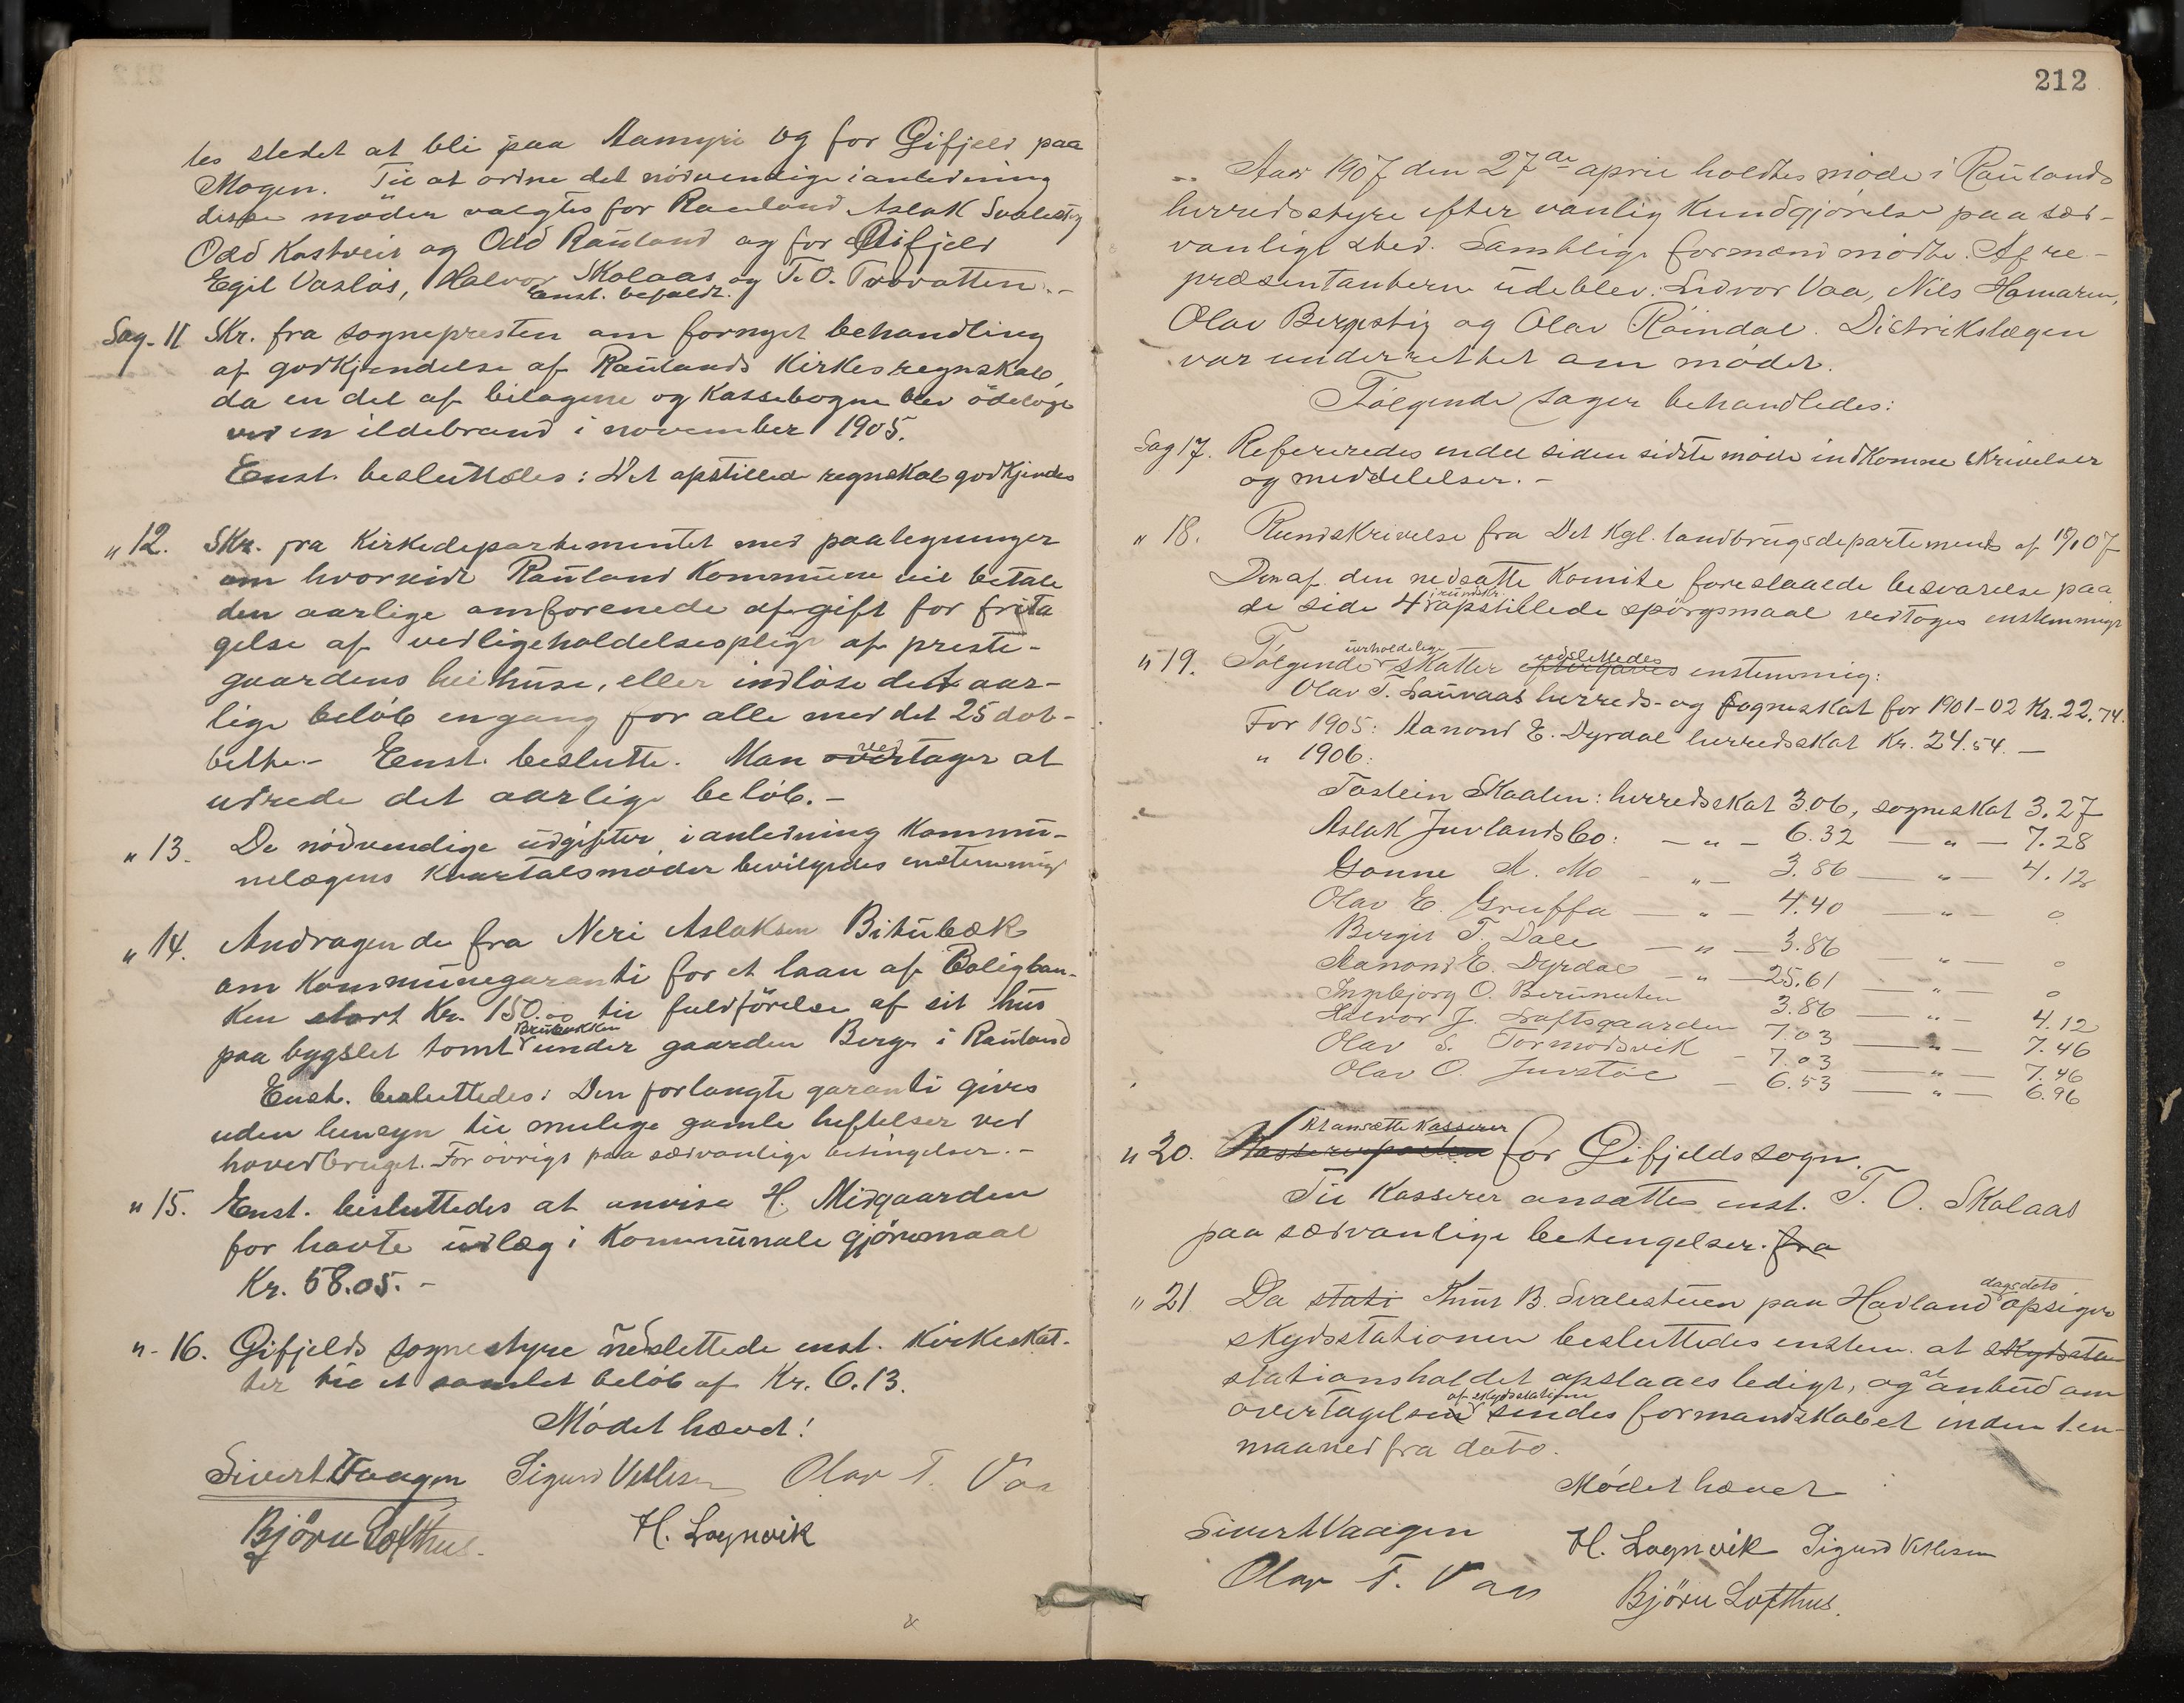 tes stedet at bli paa Aamyri og for Gifjeld paa
Mogen. Til at ordne det nødvendige i anledning
disse møder valgtes for Rauland Aslak Svalestøg
Odd Kostveit og Odd Rauland og for Gifjeld
Egil Vaslås, Halvor Skolaas og T. O. Trovatten. -
Enst. bifaldt.
Sag. 11 Skr. fra sognepresten om fornyet behandling
af godkjendelse af Raulands Kirkes regnskab,
da en del af bilagene og Kassebogne blev ödelagt
ved en ildebrand i november 1905.
Enst. besluttedes: Det opstillede regnskab godkjendes
" 12. Skr. fra Kirkedepartementet med paalegninger
om hvorvidt Rauland Kommune vil betale
den aarlige omforenede afgift for frita
gelse af vedligeholdelsespligt af preste-
gaardens huse, eller indløse det aar-
lige beløb engang for alle med det 25 dob-
belte. - Enst. beslutte. Man vedtager at
udrede det aarlige beløb. -
" 13. De nödvendige udgifter i anledning Kommu-
nelægens Kvartalsmøder bevilgedes enstemmig
" 14. Andragende fra Neri Aslaksen Bitubæk
om Kommunegaranti for et laan af Boligban-
ken stort Kr. 150.00 til fuldförelse af sit hus
paa bygslet tomt Brubakken under gaarden Berge i Rauland
Enst. besluttedes: Den forlangte garanti gives
uden hensyn til mulige gamle heftelser ved
hovedbruget. For øvrigt paa sædvanlige betingelser. -
" 15. Enst. besluttedes at anvise H. Midgaarden
for havte udlæg i Kommunale gjöremaal
Kr. 58.05. -
" - 16. Gifjelds sognestyre nedslettede enst. Kirkeskat-
ter til et samlet beløb af Kr. 6.13.
Mødet hævet!
Sivert Vaagen Sigurd Vetlesen Olav T. Vaa
Björn Lofthus. H. Lognvik
212
Aar 1907 den 27de april holdtes møde i Raulands
herredsstyre efter vanlig Kundgjörelse paa sæd-
vanligt sted. Samtlige formænd mødte. Af re-
præsentanterne udeblev: Lidvor Vaa, Nils Hamaren,
Olav Bergestig og Olav Röindal. Distrikslægen
var underrettet om mødet.
Følgende sager behandledes:
Sag 17. Refereredes endel siden sidste møde indkomne skrivelser
og meddelelser. -
" 18. Rundskrivelse fra Det Kgl. landbrugsdepartement af 18/1 07
Den af den nedsatte Komite foreslaaede besvarelse paa
de side 4 i rundskr. opstillede spörgsmaal vedtoges enstemmigt
" 19. Følgende uerholdelige skatter eftergaves udslettedes enstemmig:
Olav T. Lauvaas herreds- og sogneskat for 1901-02 Kr. 22.74.
For 1905: Aanond E. Dyrdal herredsskat Kr. 24.54. -
" 1906:
Tostein Skaalen: herredsskat 3.06, sogneskat 3.27
Aslak Juvlandsbo: - " - 6.32 - " - 7.28
Gonne A. Mo - " - 3.86 - " - 4.12
Olav E. Gruffa - " - 4.40 - " - 0
Bergit T. Dale - " - 3.86 - " - 0
Aanond E. Dyrdal - " - 25.61 - " - 0
Ingebjorg O. Berunuten 3.86 - " - 4.12
Halvor J. Loftsgaarden 7.03 - " - 7.46
Olav S. Tormodsvik - 7.03 - " - 7.46
Olav O. Juvstøl - 6.53 - " - 6.96
" 20. Kassererposten At ansætte Kasserer for Gifjelds sogn.
Til Kasserer ansattes enst. T. O. Skolaas
paa sædvanlige betingelser. fra
" 21 Da stati Knut B. Svalestuen paa Havland dagsdato opsiger
skydsstationen besluttedes enstem. at skydssta
stationsholdet opslaaes ledigt, og at anbud om
overtagelsen af skydsstation sendes formandskabet inden 1 en
maaned fra dato.
Mødet hævet
Sivert Vaagen H. Lognvik Sigurd Vetlesen
Olav T. Vaa Björn Lofthus.